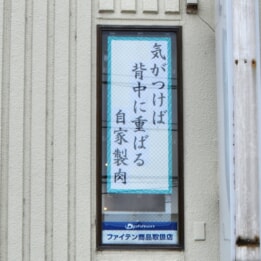 気がつけば
背中に重ばる
自家製肉
Phiten
ファイテン商品取扱店